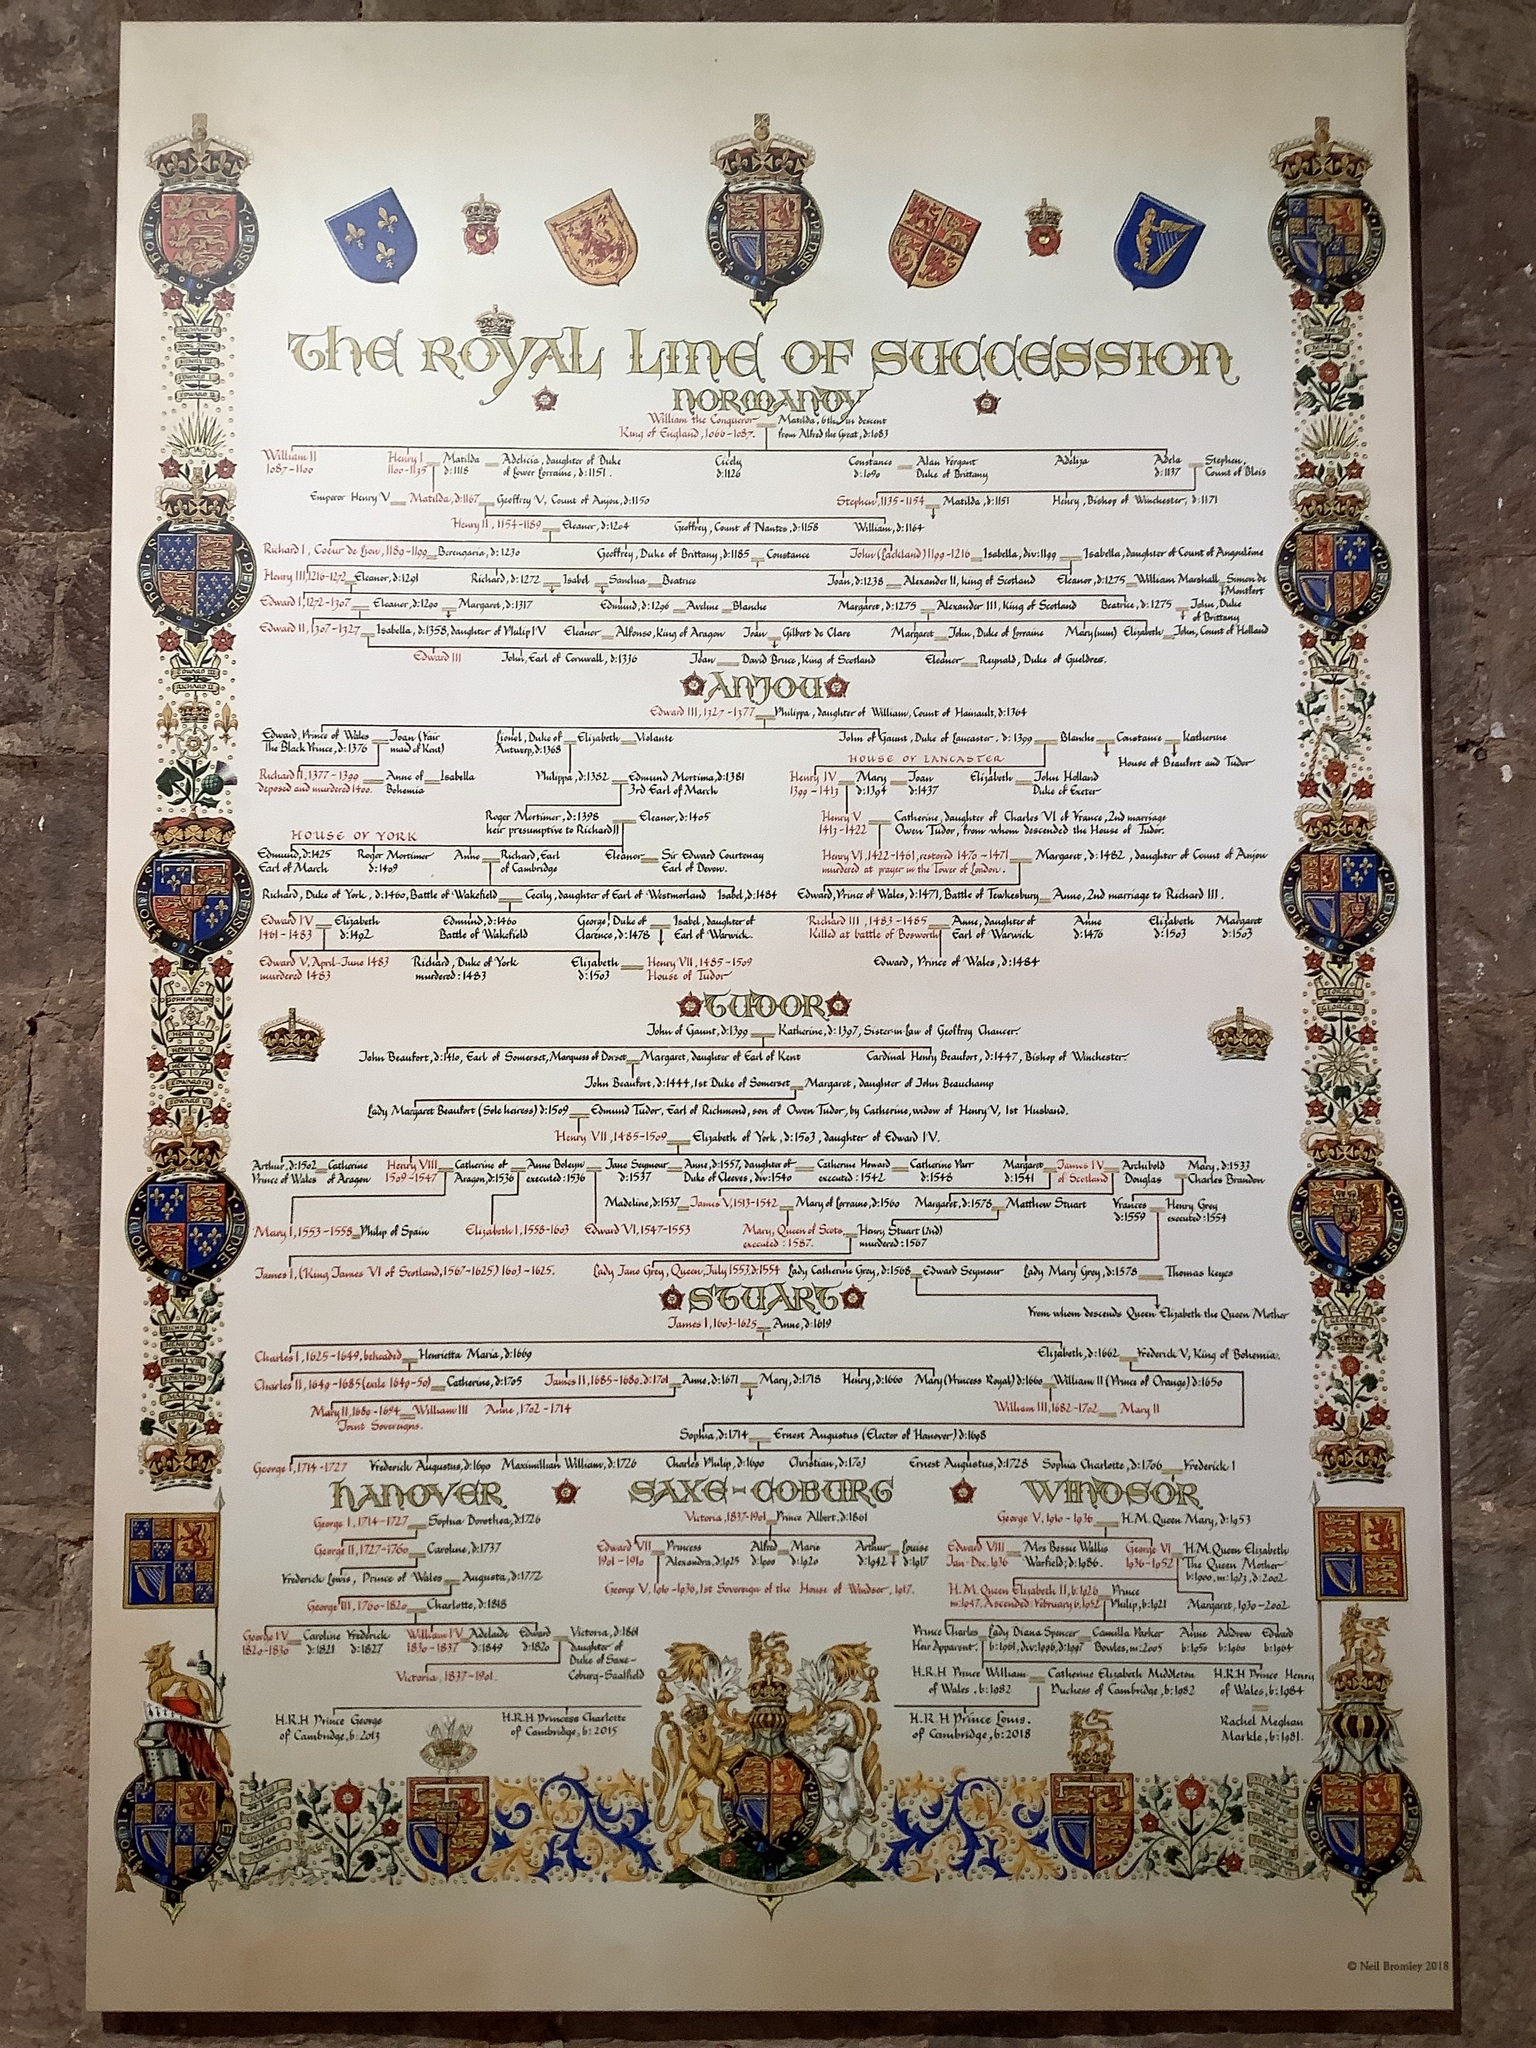 THE ROYAL LINE OF SUCCESSION
NORMANDY
William the Conqueror Matilda, 6th in descent
King of England, 1066-1087. from Alfred the Great, d:1083
William II Henry I Matilda Adelicia, daughter of Duke Cicely Constance Alan Fergant Adeliza Adela Stephen,
1087-1100 1100-1135 d:1118 of Lower Lorraine, d:1151. d:1126 d:1090 Duke of Brittany d:1137 Count of Blois
Emperor Henry V Matilda, d:1167 Geoffrey V, Count of Anjou, d:1150 Stephen, 1135-1154 Matilda, d:1151 Henry, Bishop of Winchester, d:1171
Henry II, 1154-1189 Eleanor, d:1204 Geoffrey, Count of Nantes, d:1158 William, d:1164
Richard I, Coeur de Lion, 1189-1199 Berengaria, d:1230 Geoffrey, Duke of Brittany, d:1185 Constance John (Lackland) 1199-1216 Isabella, div:1199 Isabella, daughter of Count of Angoulême
Henry III, 1216-1272 Eleanor, d:1291 Richard, d:1272 Isabel Sanchia Beatrice Joan, d:1238 Alexander II, King of Scotland Eleanor, d:1275 William Marshall Simon de
Montfort
Edward I, 1272-1307 Eleanor, d:1290 Margaret, d:1317 Edmund, d:1296 Aveline Blanche Margaret, d:1275 Alexander III, King of Scotland Beatrice, d:1275 John, Duke
of Brittany
Edward II, 1307-1327 Isabella, d:1358, daughter of Philip IV Eleanor Alfonso, King of Aragon Joan Gilbert de Clare Margaret John, Duke of Lorraine Mary (nun) Elizabeth John, Count of Holland
Edward III John, Earl of Cornwall, d:1336 Joan David Bruce, King of Scotland Eleanor Reynald, Duke of Gueldres.
ANJOU
Edward III, 1327-1377 Philippa, daughter of William, Count of Hainault, d:1364
Edward, Prince of Wales Joan (Fair Lionel, Duke of Elizabeth Violante John of Gaunt, Duke of Lancaster, d:1399 Blanche Constance Katherine
The Black Prince, d:1376 maid of Kent) Antwerp, d:1368
HOUSE OF LANCASTER House of Beaufort and Tudor
Richard II, 1377-1399 Anne of Isabella Philippa, d:1382 Edmund Mortima, d:1381 Henry IV Mary Joan Elizabeth John Holland
deposed and murdered 1400. Bohemia 3rd Earl of March 1399-1413 d:1394 d:1437 Duke of Exeter
Roger Mortimer, d:1398 Eleanor, d:1405 Henry V Catherine, daughter of Charles VI of France, 2nd marriage
heir presumptive to Richard II 1413-1422 Owen Tudor, from whom descended the House of Tudor.
HOUSE OF YORK
Edmund, d:1425 Roger Mortimer Anne Richard, Earl Eleanor Sir Edward Courtenay Henry VI, 1422-1461, restored 1470-1471 Margaret, d:1482, daughter of Count of Anjou
Earl of March d:1409 of Cambridge Earl of Devon. murdered at prayer in the Tower of London.
Richard, Duke of York, d:1460, Battle of Wakefield Cecily, daughter of Earl of Westmorland Isabel, d:1484 Edward, Prince of Wales, d:1471, Battle of Tewkesbury Anne, 2nd marriage to Richard III.
Edward IV Elizabeth Edmund, d:1460 George, Duke of Isabel, daughter of Richard III, 1483-1485 Anne, daughter of Anne Elizabeth Margaret
1461-1483 d:1492 Battle of Wakefield Clarence, d:1478 Earl of Warwick. Killed at battle of Bosworth Earl of Warwick d:1476 d:1503 d:1503
Edward V, April-June 1483 Richard, Duke of York Elizabeth Henry VII, 1485-1509 Edward, Prince of Wales, d:1484
murdered 1483 murdered:1483 d:1503 House of Tudor
TUDOR
John of Gaunt, d:1399 Katherine, d:1397, Sister-in-law of Geoffrey Chaucer.
John Beaufort, d:1410, Earl of Somerset, Marquess of Dorset Margaret, daughter of Earl of Kent Cardinal Henry Beaufort, d:1447, Bishop of Winchester.
John Beaufort, d:1444, 1st Duke of Somerset Margaret, daughter of John Beauchamp
Lady Margaret Beaufort (Sole heiress) d:1509 Edmund Tudor, Earl of Richmond, son of Owen Tudor, by Catherine, widow of Henry V, 1st Husband.
Henry VII, 1485-1509 Elizabeth of York, d:1503, daughter of Edward IV.
Arthur, d:1502 Catherine Henry VIII Catherine of Anne Boleyn Jane Seymour Anne, d:1557, daughter of Catherine Howard Catherine Parr Margaret James IV Archibold Mary, d:1533
Prince of Wales of Aragon 1509-1547 Aragon, d:1536 executed:1536 d:1537 Duke of Cleeves, div:1540 executed:1542 d:1548 d:1541 of Scotland Douglas Charles Brandon
Madeline, d:1537 James V, 1513-1542 Mary of Lorraine, d:1560 Margaret, d:1578 Matthew Stuart Frances Henry Grey
d:1559 executed:1554
Mary I, 1553-1558 Philip of Spain Elizabeth I, 1558-1603 Edward VI, 1547-1553 Mary, Queen of Scots Henry Stuart (2nd)
executed:1587. murdered:1567
James I, (King James VI of Scotland, 1567-1625) 1603-1625. Lady Jane Grey, Queen, July 1553, d:1554 Lady Catherine Grey, d:1568 Edward Seymour Lady Mary Grey, d:1578 Thomas Keyes
STUART
From whom descends Queen Elizabeth the Queen Mother
James I, 1603-1625 Anne, d:1619
Charles I, 1625-1649, beheaded Henrietta Maria, d:1669 Elizabeth, d:1662 Frederick V, King of Bohemia.
Charles II, 1649-1685 (exile 1649-50) Catherine, d:1705 James II, 1685-1689, d:1701 Anne, d:1671 Mary, d:1718 Henry, d:1660 Mary (Princess Royal) d:1660 William II (Prince of Orange) d:1650
Mary II, 1689-1694 William III Anne, 1702-1714 William III, 1682-1702 Mary II
Joint Sovereigns.
Sophia, d:1714 Ernest Augustus (Elector of Hanover) d:1698
George I, 1714-1727 Frederick Augustus, d:1690 Maximillian William, d:1726 Charles Philip, d:1690 Christian, d:1703 Ernest Augustus, d:1728 Sophia Charlotte, d:1706 Frederick I
HANOVER SAXE-COBURG WINDSOR
George I, 1714-1727 Sophia Dorothea, d:1726 Victoria, 1837-1901 Prince Albert, d:1861 George V, 1910-1936 H.M. Queen Mary, d:1953
George II, 1727-1760 Caroline, d:1737 Edward VII Princess Alfred Marie Arthur Louise Edward VIII Mrs Bessie Wallis George VI H.M. Queen Elizabeth
1901-1910 Alexandra, d:1925 d:1900 d:1920 d:1942 d:1917 Jan-Dec, 1936 Warfield, d:1986. 1936-1952 The Queen Mother
b:1900, m:1923, d:2002
Frederick Lewis, Prince of Wales Augusta, d:1772 George V, 1910-1936, 1st Sovereign of the House of Windsor, 1917. H.M. Queen Elizabeth II, b:1926 Prince
George III, 1760-1820 Charlotte, d:1818 m:1947. Ascended: February 6, 1952 Philip, b:1921 Margaret, 1930-2002
George IV Caroline Frederick William IV Adelaide Edward Victoria, d:1861 Prince Charles Lady Diana Spencer Camilla Parker Anne Andrew Edward
1820-1830 d:1821 d:1827 1830-1837 d:1849 d:1820 daughter of Heir Apparent. b:1961, div:1996, d:1997 Bowles, m:2005 b:1950 b:1960 b:1964
Duke of Saxe-
Victoria, 1837-1901. Coburg-Saalfield
H.R.H Prince William Catherine Elizabeth Middleton H.R.H Prince Henry
of Wales, b:1982 Duchess of Cambridge, b:1982 of Wales, b:1984
H.R.H Prince George H.R.H Princess Charlotte H.R.H Prince Louis. Rachel Meghan
of Cambridge, b:2013 of Cambridge, b:2015 of Cambridge, b:2018 Markle, b:1981.
© Neil Bromley 2018